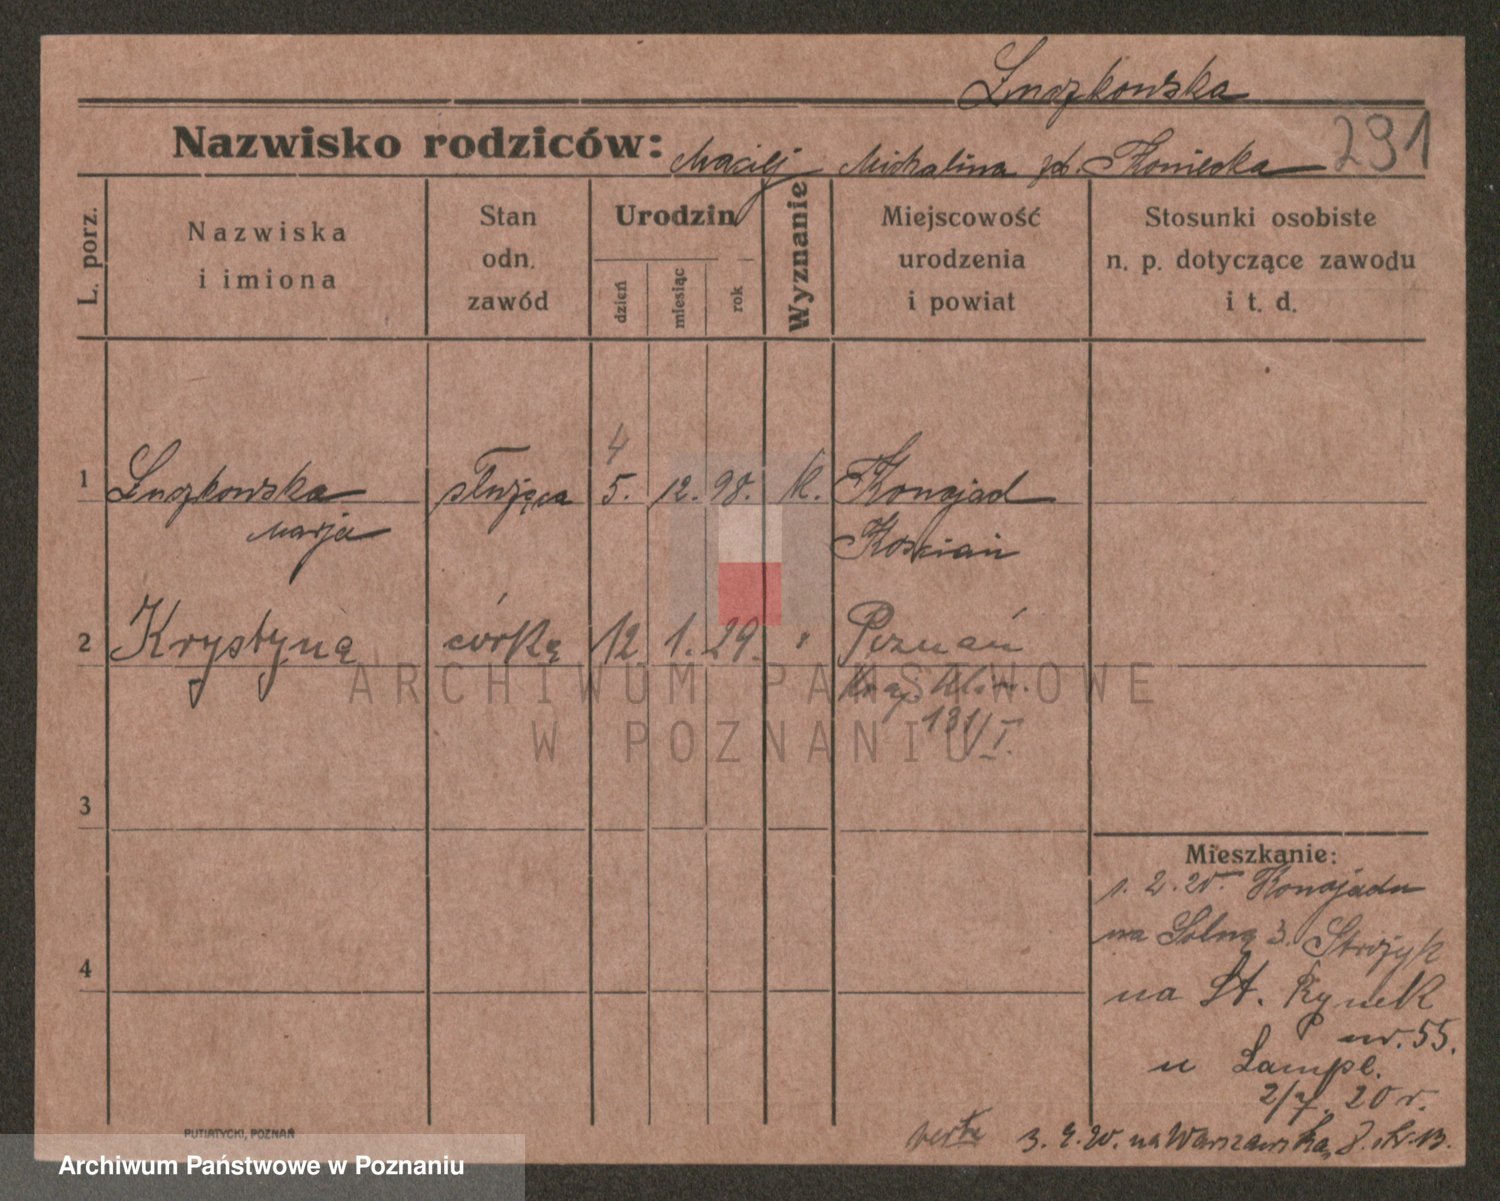 Łuszkowska
Nazwisko rodziców: Maciej Michalina Koniecka 291
L. porz.
Nazwiska
i imiona
Stan
odn.
zawód
Urodzin
dzień
miesiąc
rok
Wyznanie
Miejscowość
urodzenia
i powiat
Stosunki osobiste
n. p. dotyczące zawodu
i t. d.
4
1 Łuszkowska służąca 5. 12. 98. k. Konojad
Marja Kościan
2 Krystyna córka 12 1. 29. " Poznań
131/I.
3
4
Mieszkanie:
1. 2. 20. Konojadu
na Solną 3. Strózyk
na St. Rynek
nr. 55.
u Lampl.
2/7. 20 r.
verte 3. 20. na Warszawska,
PUTIATYCKI, POZNAŃ
ARCHIWUM PAŃSTWOWE
W POZNANIU
Archiwum Państwowe w Poznaniu